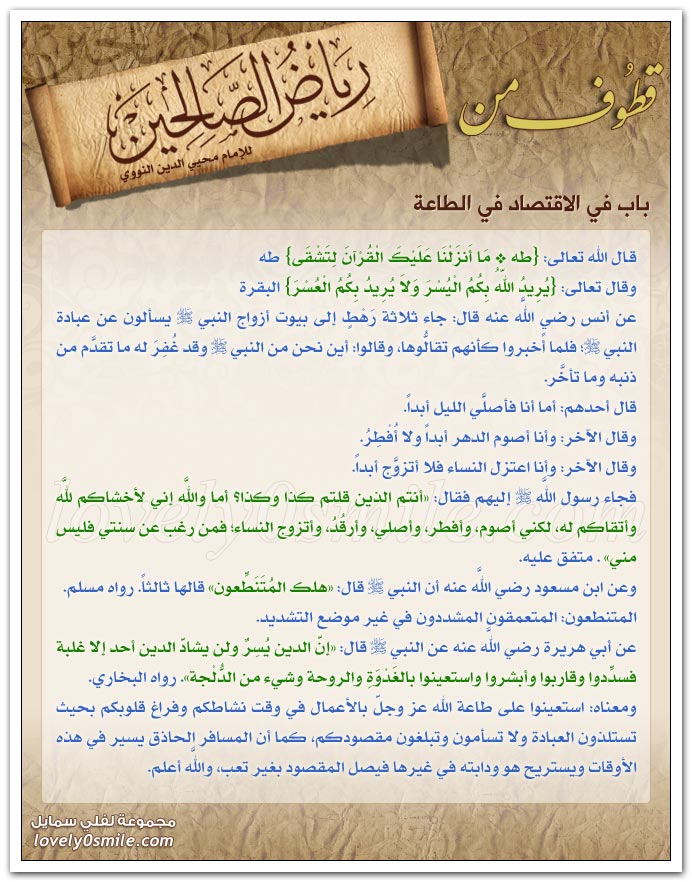 قطوف من
رياض الصالحين
للإمام محيي الدين النووي
باب في الاقتصاد في الطاعة
قال الله تعالى: {طه ۞ مَا أَنزَلْنَا عَلَيْكَ الْقُرْآنَ لِتَشْقَى} طه
وقال تعالى: {يُرِيدُ اللّهُ بِكُمُ الْيُسْرَ وَلاَ يُرِيدُ بِكُمُ الْعُسْرَ} البقرة
عن أنس رضي الله عنه قال: جاء ثلاثة رَهْطٍ إلى بيوت أزواج النبي ﷺ يسألون عن عبادة
النبي ﷺ؛ فلما أُخبروا كأنهم تقالُّوها، وقالوا: أين نحن من النبي ﷺ وقد غُفِرَ له ما تقدَّم من
ذنبه وما تأخَّر.
قال أحدهم: أما أنا فأصلَّي الليل أبداً.
وقال الآخر: وأنا أصوم الدهر أبداً ولا أُفْطِرُ.
وقال الآخر: وأنا اعتزل النساء فلا أتزوَّج أبداً.
فجاء رسول اللَّه ﷺ إليهم فقال: «أنتم الذين قلتم كذا وكذا؟ أما واللَّه إني لأخشاكم للَّه
وأتقاكم له، لكني أصوم، وأفطر، وأصلي، وأرقُدُ، وأتزوج النساء؛ فمن رغب عن سنتي فليس
مني» . متفق عليه.
وعن ابن مسعود رضي اللَّه عنه أن النبي ﷺ قال: «هلك المُتَنَطِّعون» قالها ثالثاً. رواه مسلم.
المتنطعون: المتعمقون المشددون في غير موضع التشديد.
عن أبي هريرة رضي الله عنه عن النبي ﷺ قال: «إنّ الدين يُسِرٌ ولن يشادّ الدين أحد إلا غلبة
فسدِّدوا وقاربوا وأبشروا واستعينوا بالغَدْوَةِ والروحة وشيء من الدُّلْجة». رواه البخاري.
ومعناه: استعينوا على طاعة الله عز وجلّ بالأعمال في وقت نشاطكم وفراغ قلوبكم بحيث
تستلذون العبادة ولا تسأمون وتبلغون مقصودكم، كما أن المسافر الحاذق يسير في هذه
الأوقات ويستريح هو ودابته في غيرها فيصل المقصود بغير تعب، واللَّه أعلم.
lovely0smile.com
مجموعة لفلي سمايل
lovely0smile.com